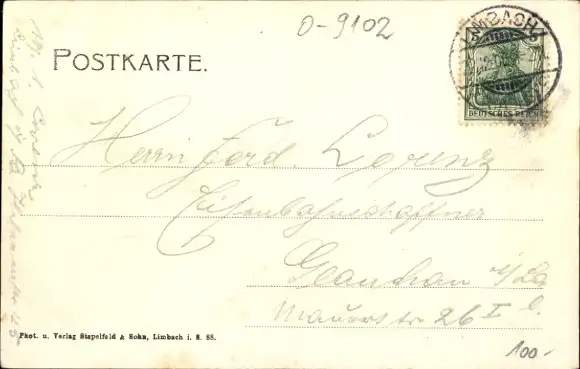 O-9102
LIMBACH
POSTKARTE.
DEUTSCHES REICH
Herrn Ferd. Lorenz
Eisenbahnschaffner
Glauchau i/Sa
Mauerstr 26 I l.
Phot. u. Verlag Stapelfeld & Sohn, Limbach i. S. 88.
100-